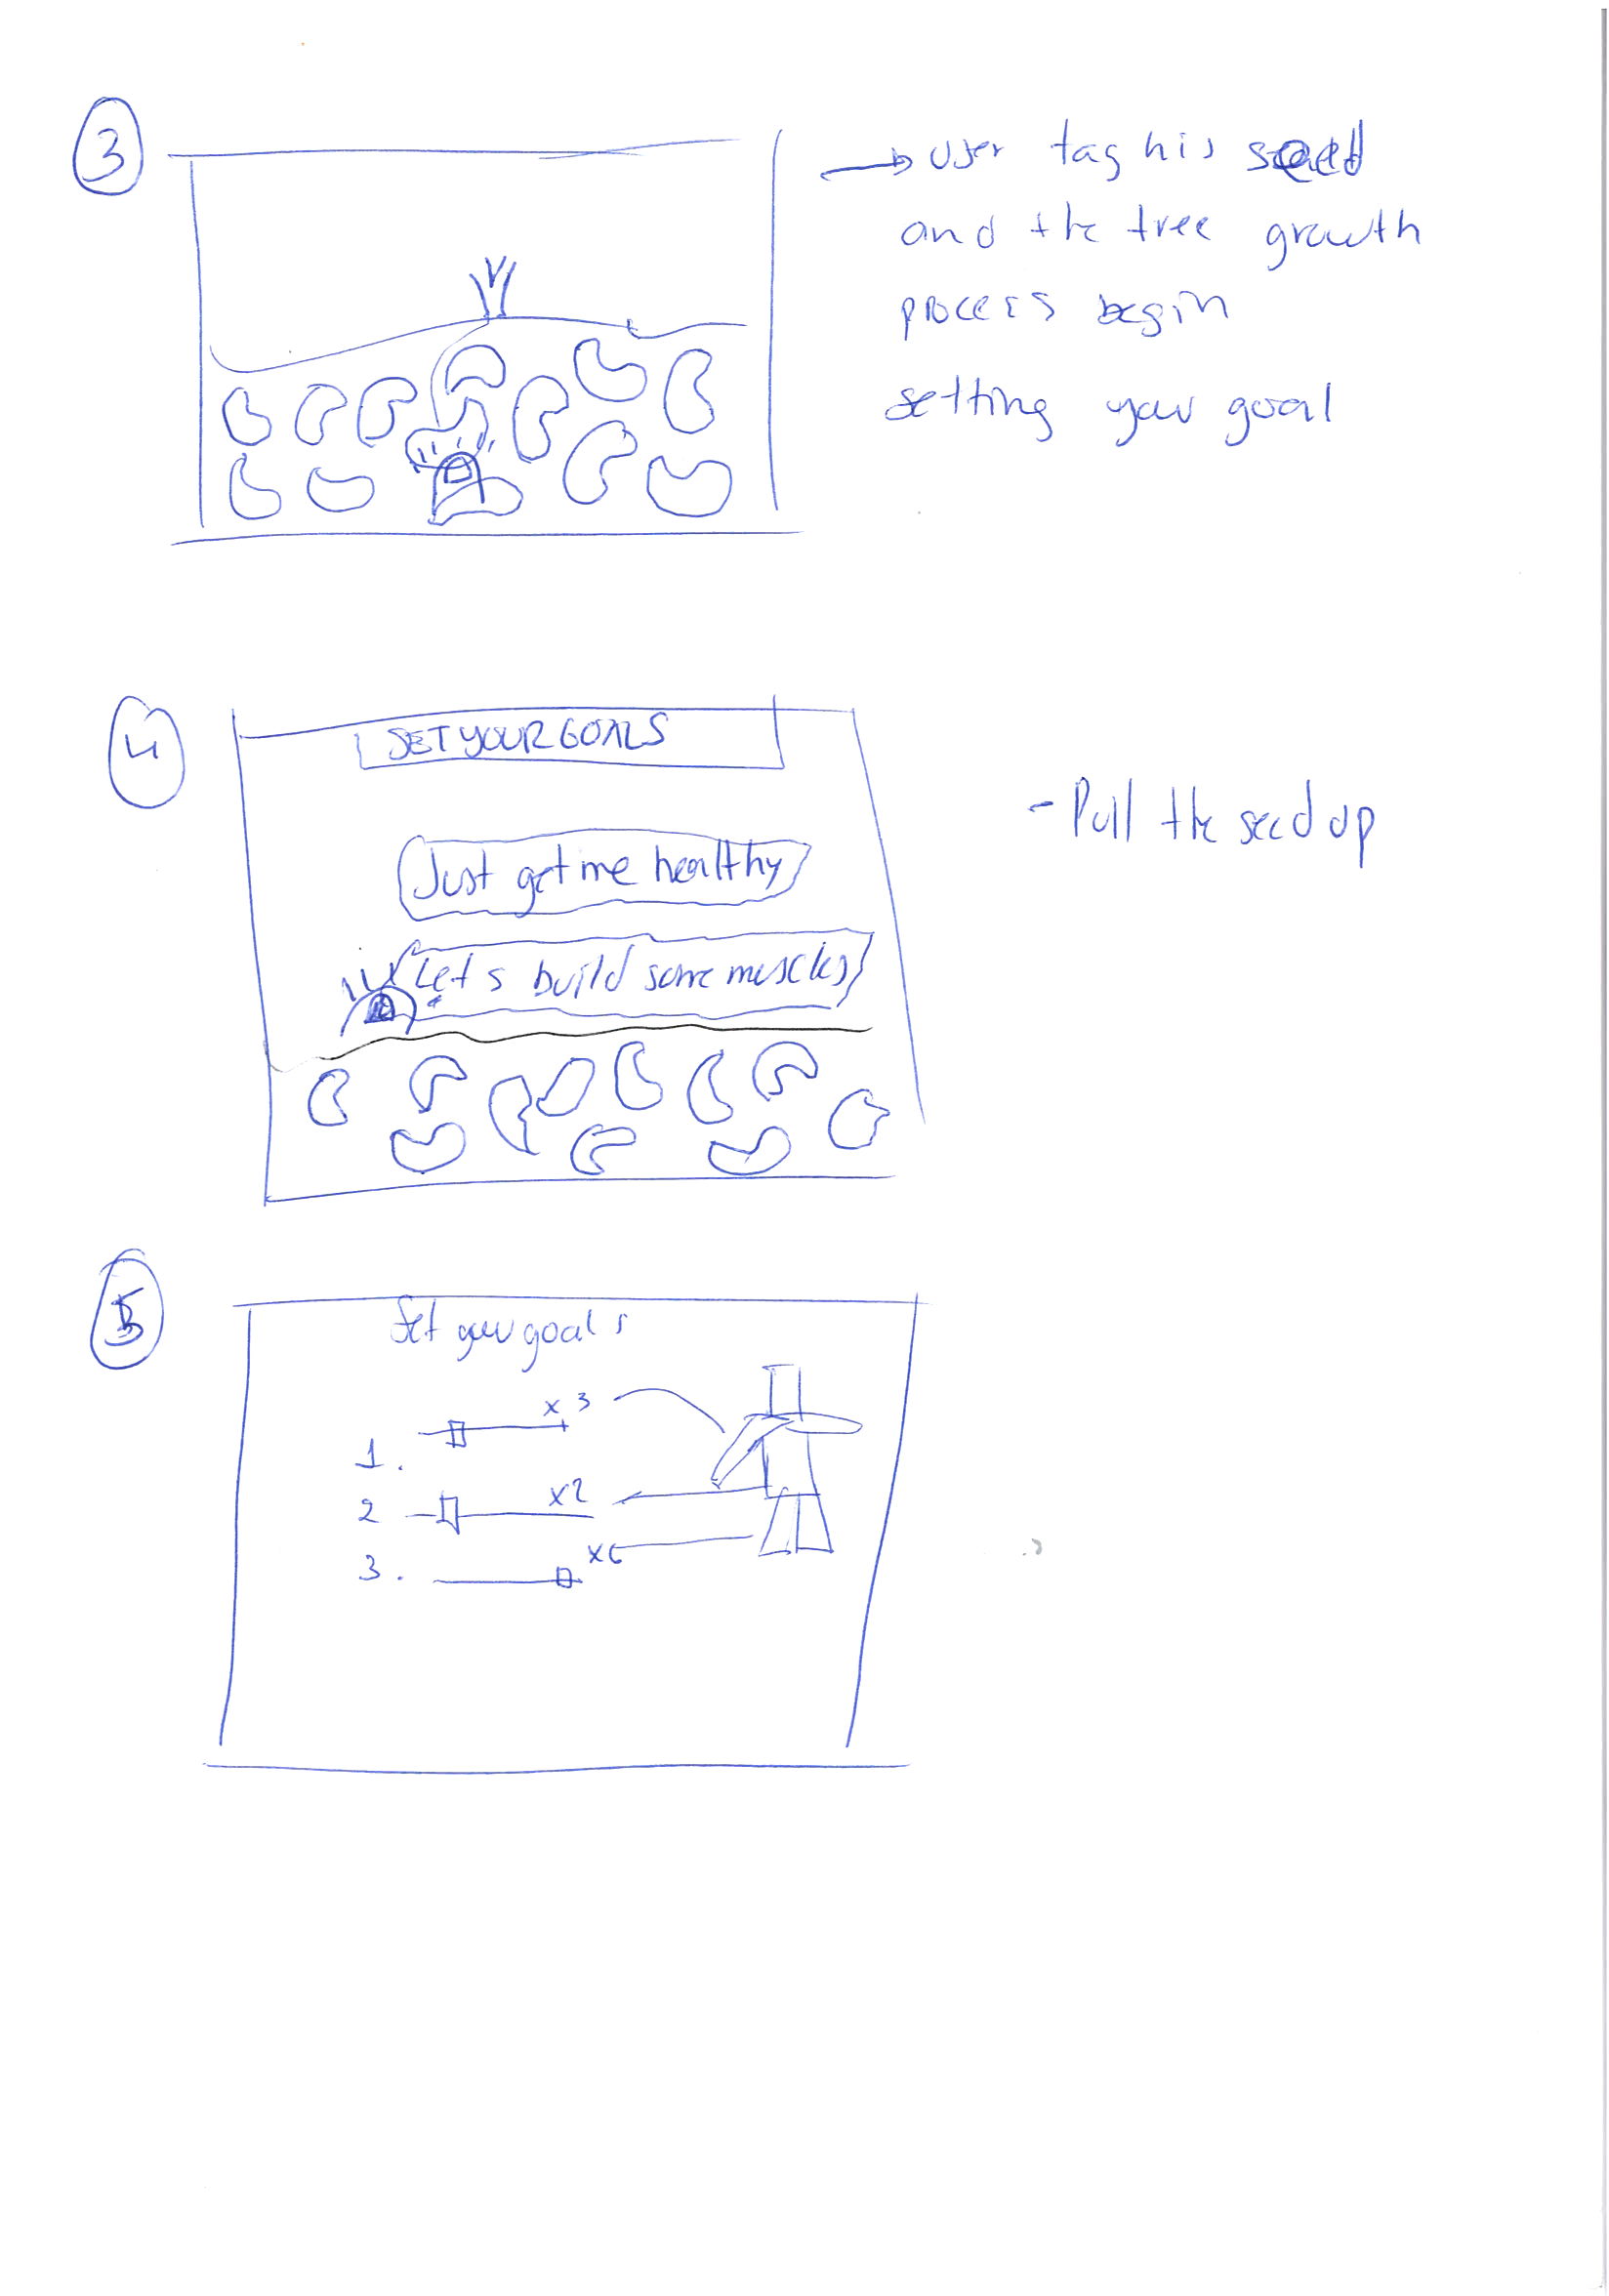 3
→ User tag his seed
and the tree growth
process begin
setting your goal
4
SET YOUR GOALS
Just get me healthy
Let's build some muscles
- Pull the seed up
5
Set your goals
x 3
1.
2 x2
3. x6